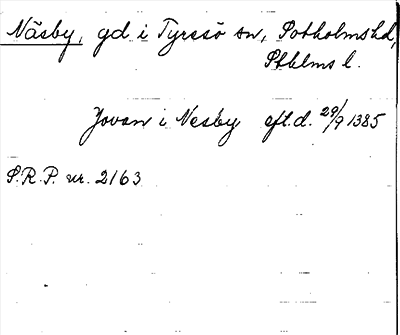 Näsby, gd i Tyresö sn, Sotholms hd,
Sthlms l.
Jovan i Nesby eft.d. 29/9 1385
S.R.P. nr. 2163